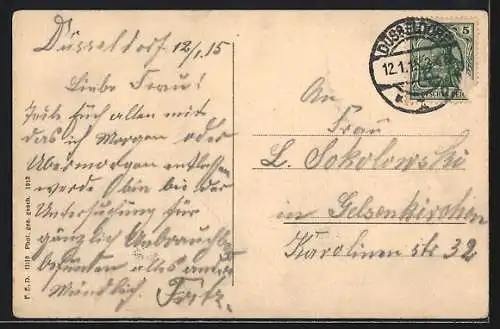 Düsseldorf 12/1.15
Liebe Frau!
Teile Euch allen mit
das ich Morgen oder
Übermorgen entlassen
werde bin bei der
Untersuchung für
gänzlich Unbrauchb.
befunden alles andere
Mündlich. Fritz.
DÜSSELDORF
12.1.15
5
An
Frau
L. Sokolowski
in Gelsenkirchen
Karolinen str 32
P. E. D. 1310 Phot. ges. gesch. 1912